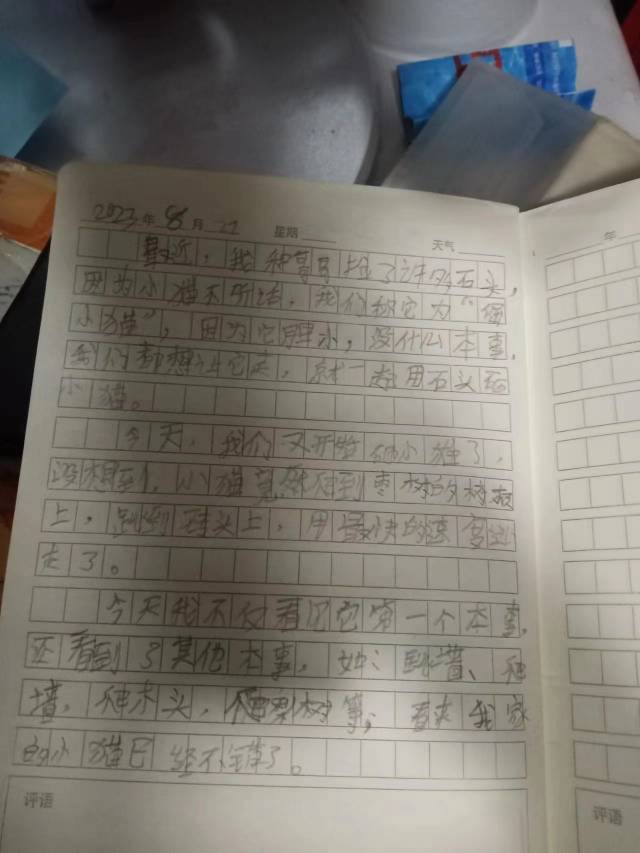 2023年 8月 21 星期 天气
最近,我和哥哥捡了许多石头,
因为小猫不听话,我们称它为“
小猫”,因为它胆小,没什么本事,
我们都想让它走,就一起用石头
小猫。
今天,我们又开始 小猫了,
没想到,小猫竟然 到枣树的树
上, 到 头上,用最快的速度
走了。
今天我不仅看见它第一个本事,
还看到了其他本事,如: 墙、
墙, 木头,爬梨树等,看来我家
的小猫已经不错了。
评语
年
评语